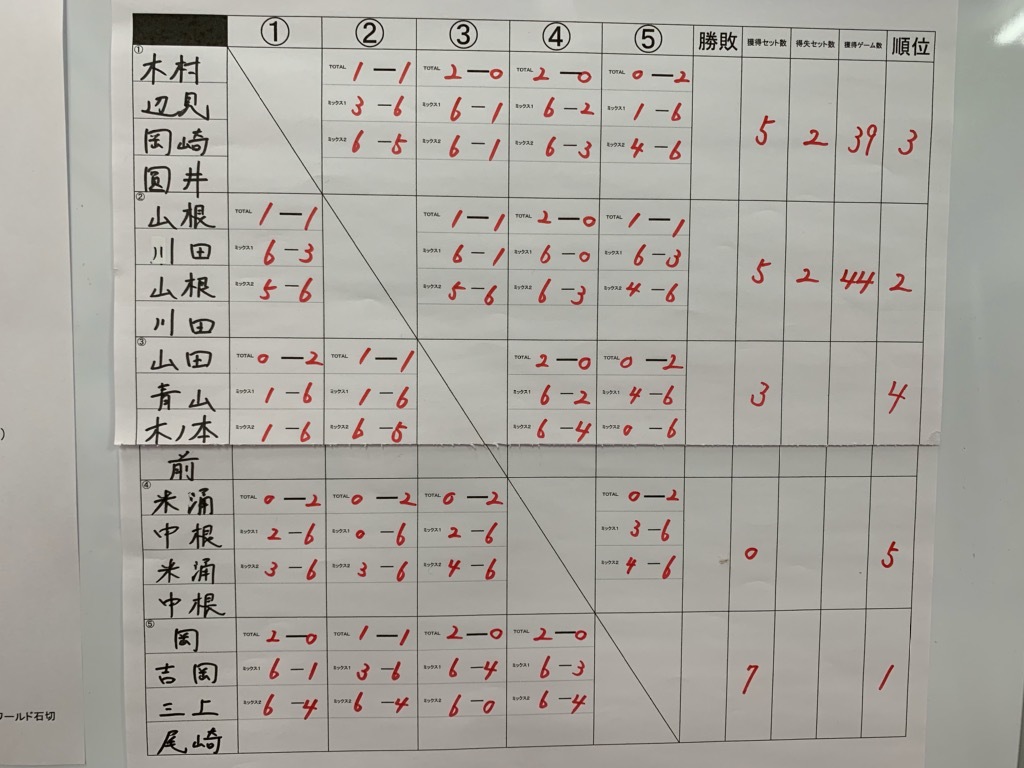 ① ② ③ ④ ⑤ 勝敗 獲得セット数 得失セット数 獲得ゲーム数 順位
①
木村 TOTAL 1-1 TOTAL 2-0 TOTAL 2-0 TOTAL 0-2
辺見 ミックス1 3-6 ミックス1 6-1 ミックス1 6-2 ミックス1 1-6
岡崎 ミックス2 6-5 ミックス2 6-1 ミックス2 6-3 ミックス2 4-6 5 2 39 3
圓井
②
山根 TOTAL 1-1 TOTAL 1-1 TOTAL 2-0 TOTAL 1-1
川田 ミックス1 6-3 ミックス1 6-1 ミックス1 6-0 ミックス1 6-3
山根 ミックス2 5-6 ミックス2 5-6 ミックス2 6-3 ミックス2 4-6 5 2 44 2
川田
③
山田 TOTAL 0-2 TOTAL 1-1 TOTAL 2-0 TOTAL 0-2
青山 ミックス1 1-6 ミックス1 1-6 ミックス1 6-2 ミックス1 4-6 3 4
木ノ本 ミックス2 1-6 ミックス2 6-5 ミックス2 6-4 ミックス2 0-6
前
④
米涌 TOTAL 0-2 TOTAL 0-2 TOTAL 0-2 TOTAL 0-2
中根 ミックス1 2-6 ミックス1 0-6 ミックス1 2-6 ミックス1 3-6
米涌 ミックス2 3-6 ミックス2 3-6 ミックス2 4-6 ミックス2 4-6 0 5
中根
⑤
岡 TOTAL 2-0 TOTAL 1-1 TOTAL 2-0 TOTAL 2-0
吉岡 ミックス1 6-1 ミックス1 3-6 ミックス1 6-4 ミックス1 6-3 7 1
三上 ミックス2 6-4 ミックス2 6-4 ミックス2 6-0 ミックス2 6-4
尾崎
)
ワールド石切